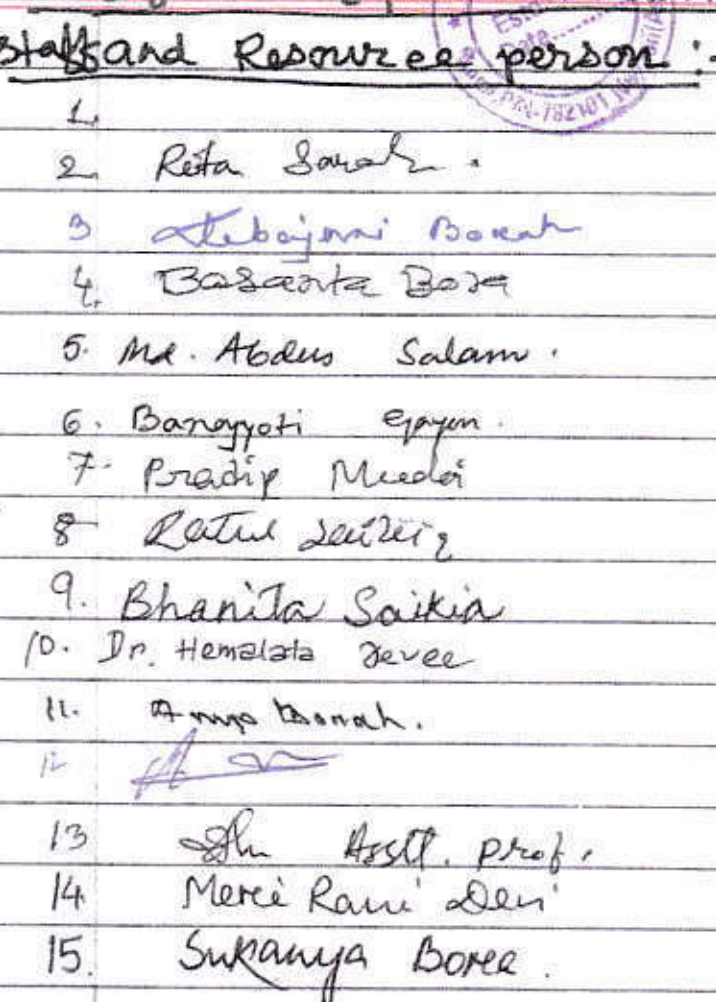 Staff and Resource person :-
1.
2. Rita Sarah.
3 Debajani Borah
4. Basanta Bora
5. Md. Abdus Salam.
6. Banajyoti Gayen.
7. Pradip Mudoi
8 Ratul
9. Bhanita Saikia
10. Dr. Hemalata Devee
11. Borah.
12
13 Asstt. Prof.
14. Merci Rani Devi
15. Sukanya Bora.
PIN-782101